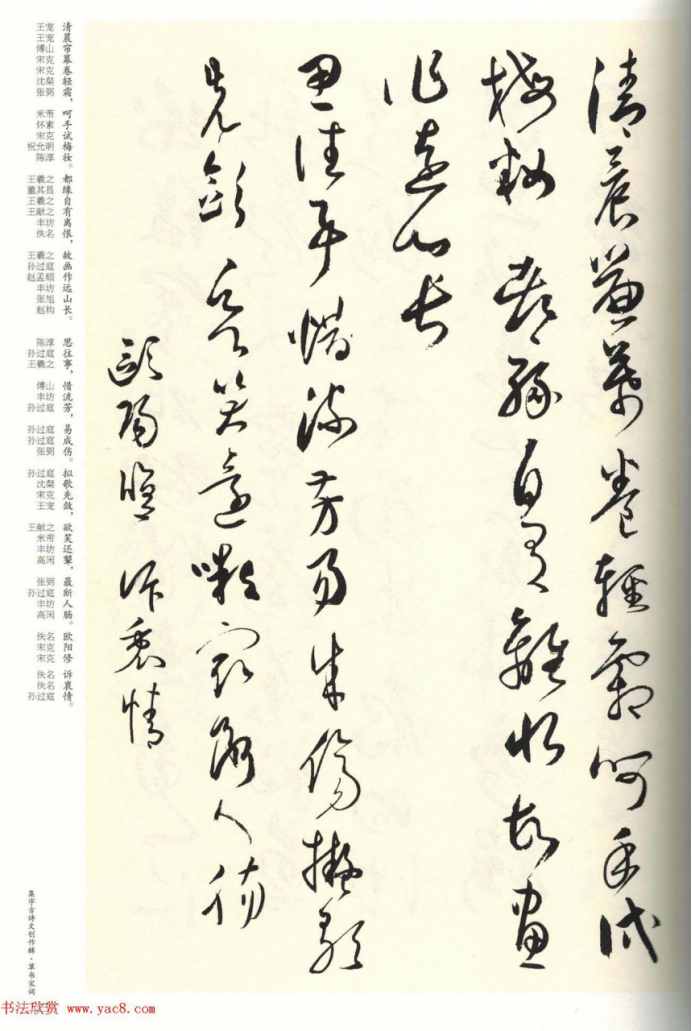 清晨簾幕卷輕霜呵手試
梅妝都緣自有離恨故畫
作遠山長
思往事惜流芳易成傷擬歌
先斂欲笑還顰最斷人腸
歐陽修訴衷情
清晨帘幕卷轻霜，呵手试梅妆。都缘自有离恨，故画作远山长。思往事，惜流芳，易成伤。拟歌先敛，欲笑还颦，最断人肠。欧阳修 诉衷情。
王宠 王宠 傅山 宋克 宋克 沈粲 张弼 米芾 怀素 宋克 祝允明 陈淳 王羲之 董其昌 王羲之 王献之 丰坊 佚名 王羲之 孙过庭 赵孟頫 丰坊 张旭 赵构 陈淳 孙过庭 王羲之 傅山 丰坊 孙过庭 孙过庭 孙过庭 张弼 孙过庭 沈粲 宋克 王宠 王献之 米芾 丰坊 高闲 张弼 孙过庭 丰坊 高闲 佚名 宋克 宋克 佚名 佚名 孙过庭
集字古诗文创作辑·草书宋词
书法欣赏 www.yac8.com